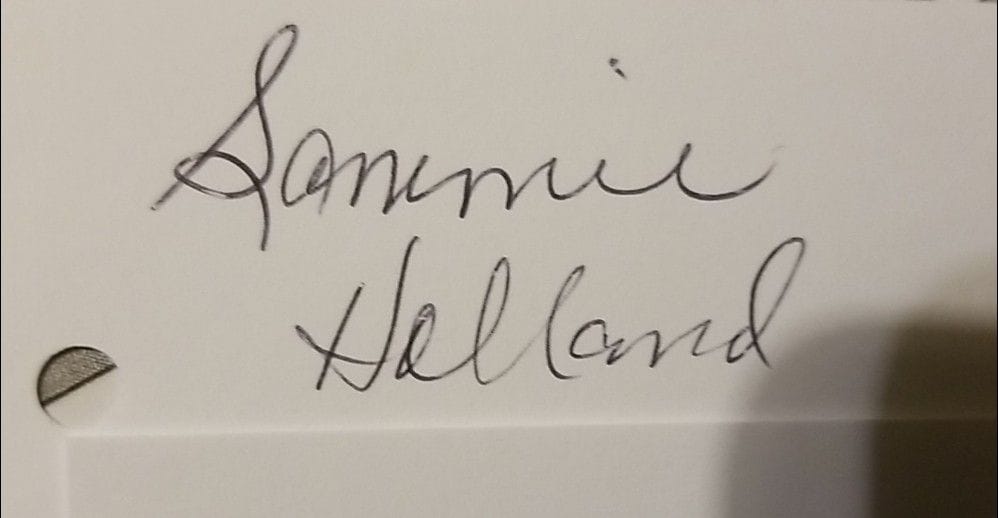 Sammie
Holland